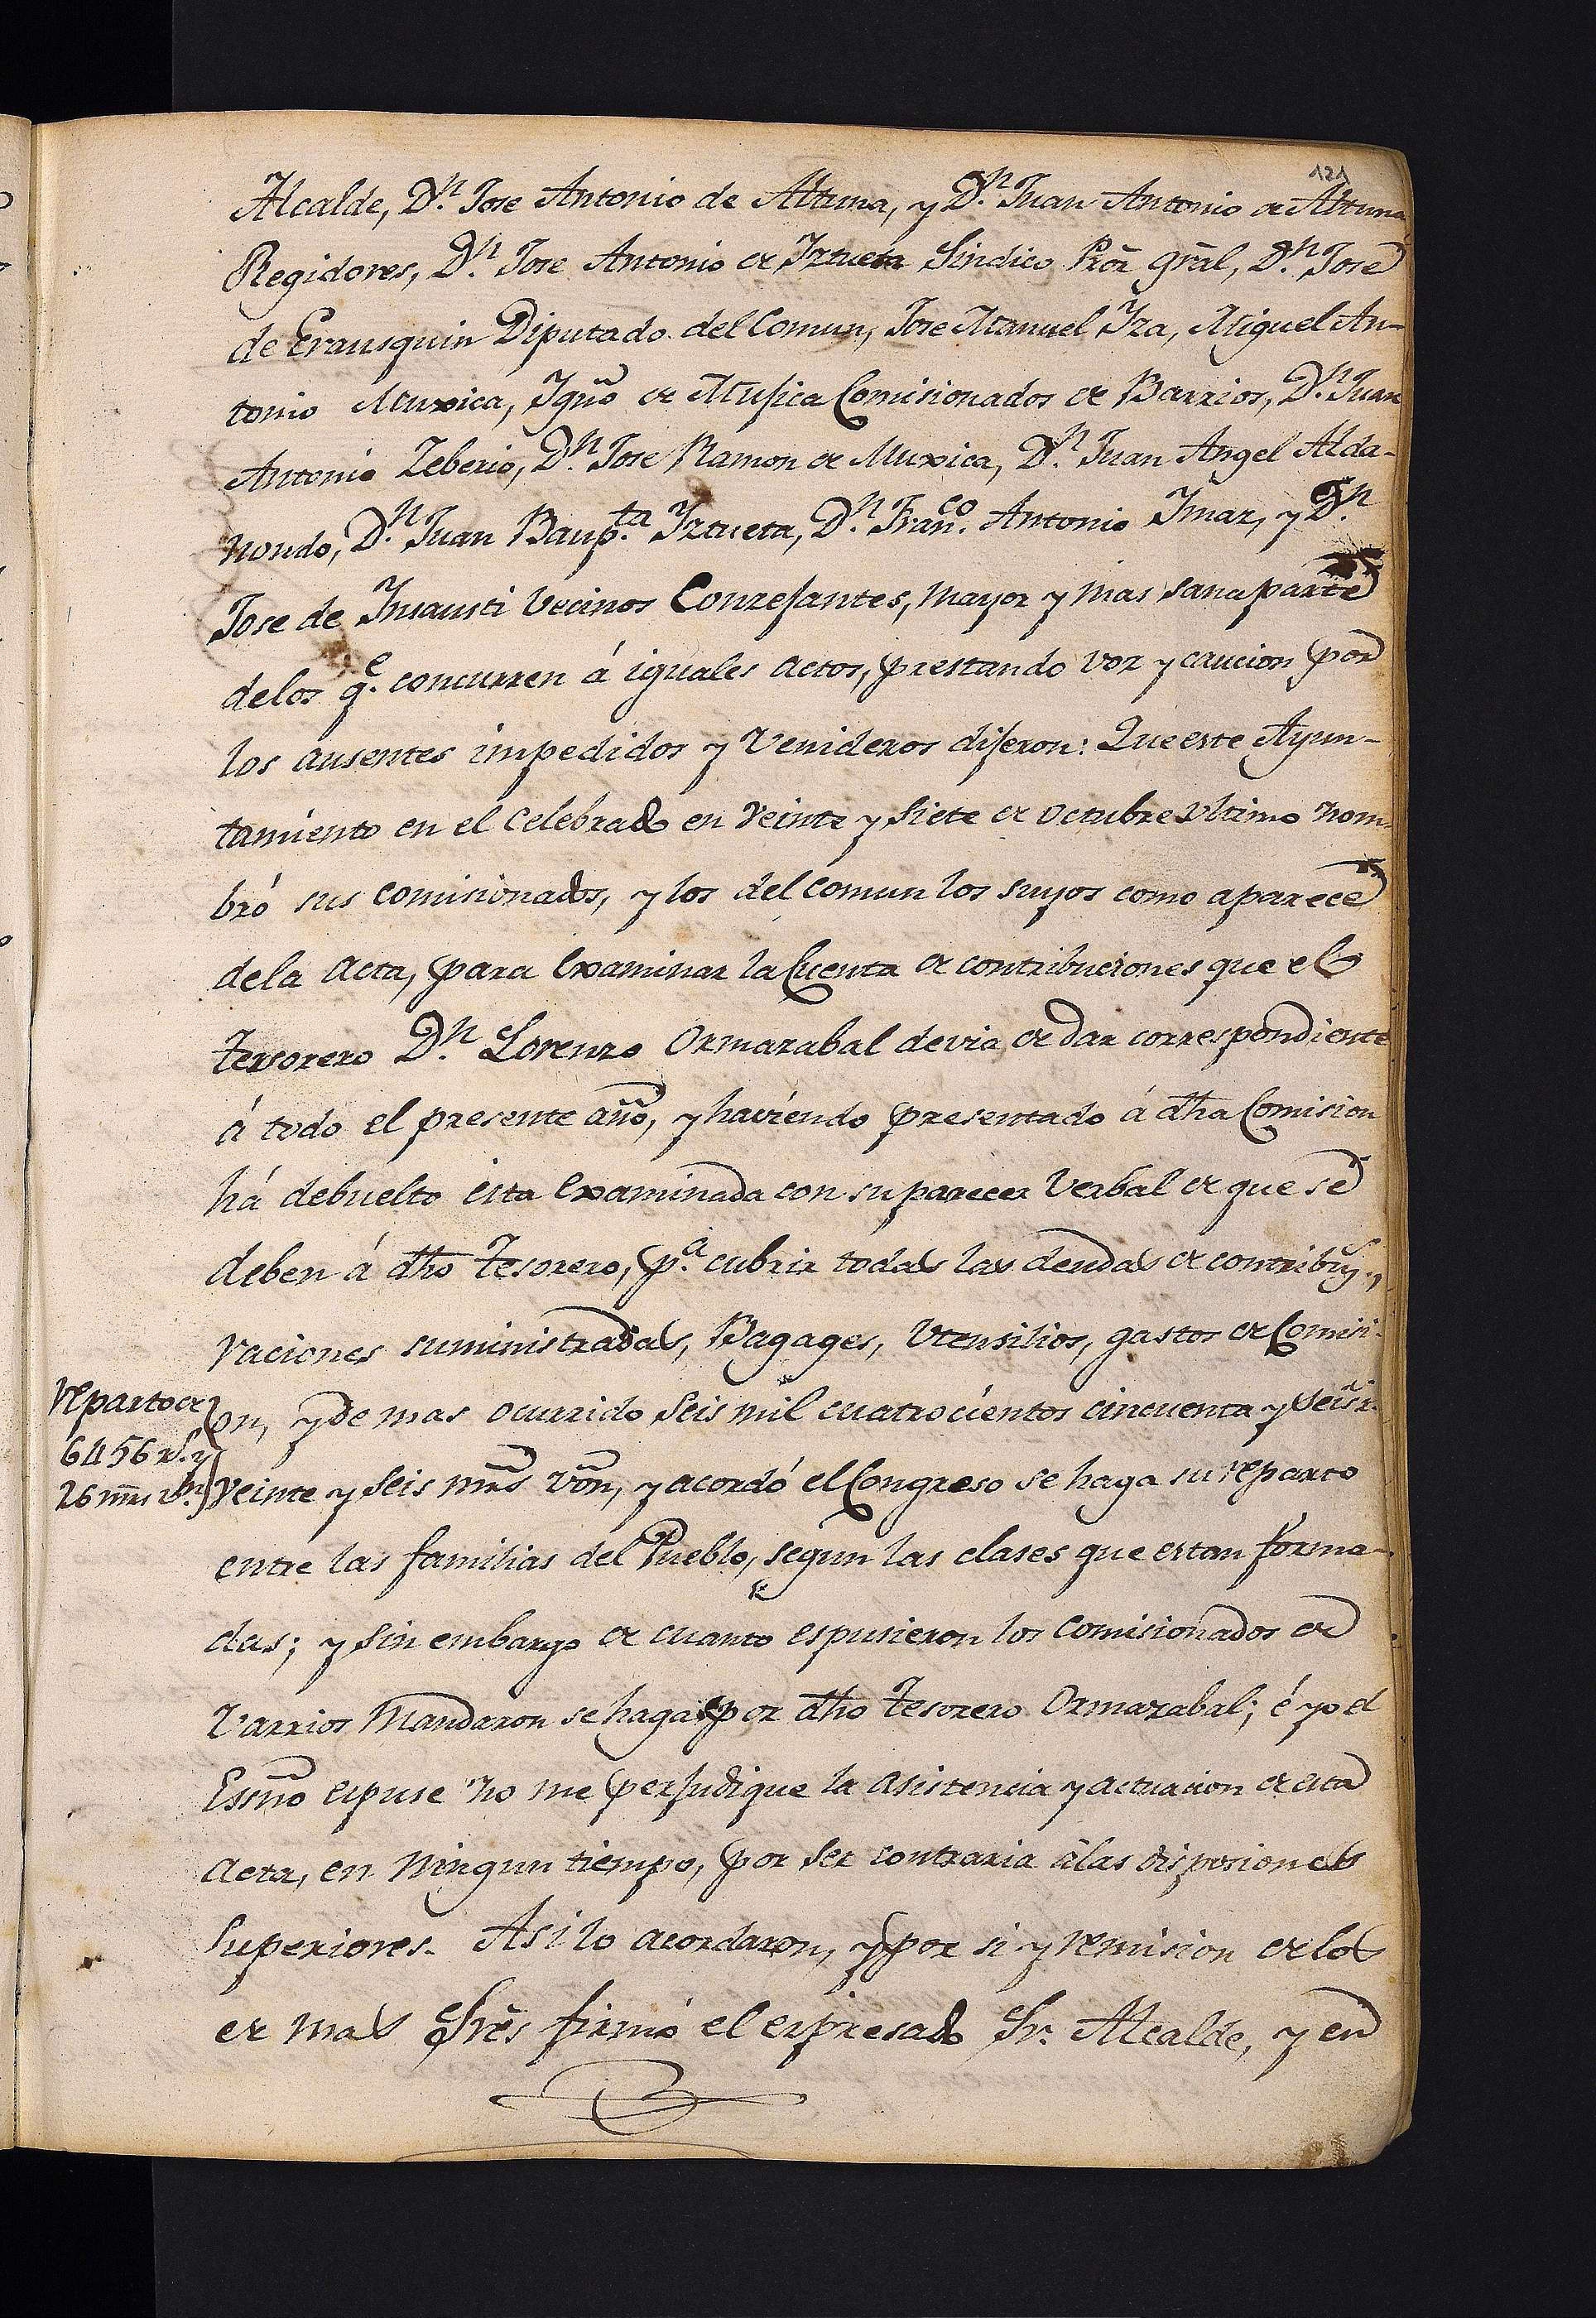 121
Alcalde, D.n Jose Antonio de Altuna, y D.n Juan Antonio de Altuna
Regidores, D.n Jose Antonio de Iztueta Sindico Pror gral, D.n Jose
de Erausquin Diputado del Comun, Jose Manuel Iza, Miguel An-
tonio Muxica, Igno de Mujica Comisionados de Barrios, D.n Juan
Antonio Zeberio, D.n Jose Ramon de Muxica, D.n Juan Angel Alda-
nondo, D.n Juan Baup.ta Iztueta, D.n Fran.co Antonio Imaz, y D.n
Jose de Insausti Vecinos Conzejantes, mayor y mas sana parte
delos q.e concurren á iguales actos, prestando voz y caucion por
los ausentes impedidos y Venideros dijeron: Que este Ayun-
tamiento en el celebrado en Veinte y Siete de Octubre ultimo nom-
bró sus comisionados, y los del comun los suyos como aparece
dela acta, para examinar la Cuenta de contribuciones que el
tersorero D.n Lorenzo Ormazabal devia de dar correspondiente
á todo el presente año, y haviendo presentado á dha Comision
há debuelto esta examinada con su parecer Verbal de que se
deben á dho Tesorero, p.a cubrir todas las deudas de contribus.,
raciones suministradas, Bagages, Utensilios, gastos de Comisi-
on, y de mas ocurrido Seis mil cuatrocientos cincuenta y seis r.s
Veinte y seis mrs von, y acordó el Congreso se haga su reparto
entre las familias del Pueblo, segun las clases que estan forma-
das; y sin embargo de cuanto espusieron los Comisionados de
Varrios Mandaron se haga por dho Tesorero Ormazabal; é yo el
Essno espuse no me perjudique la asistencia y actuacion de esta
acta, en ningun tiempo, por ser contraria álas disposiones
Superiores. Asi lo acordaron, y por si y remision de los
de mas Sres firmó el espresado Sr. Alcalde, y en
reparto de
6456 rs. y
26 mrs vn.